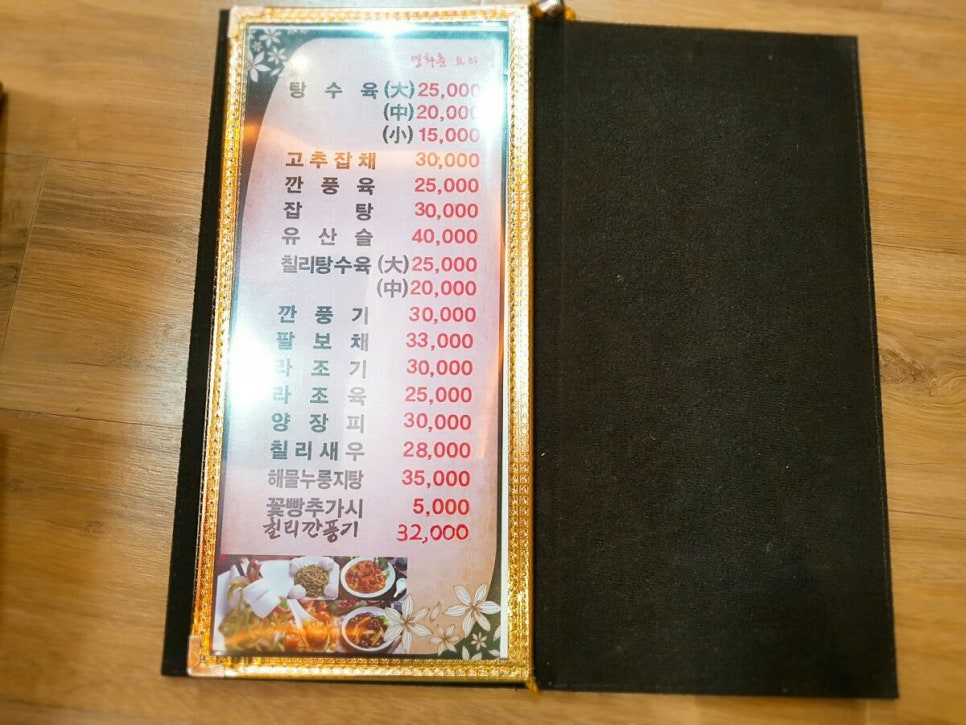 영화춘 요리
탕 수 육 (大) 25,000
(中) 20,000
(小) 15,000
고추잡채 30,000
깐 풍 육 25,000
잡 탕 30,000
유 산 슬 40,000
칠리탕수육 (大) 25,000
(中) 20,000
깐 풍 기 30,000
팔 보 채 33,000
라 조 기 30,000
라 조 육 25,000
양 장 피 30,000
칠리새우 28,000
해물누룽지탕 35,000
꽃빵추가시 5,000
칠리깐풍기 32,000